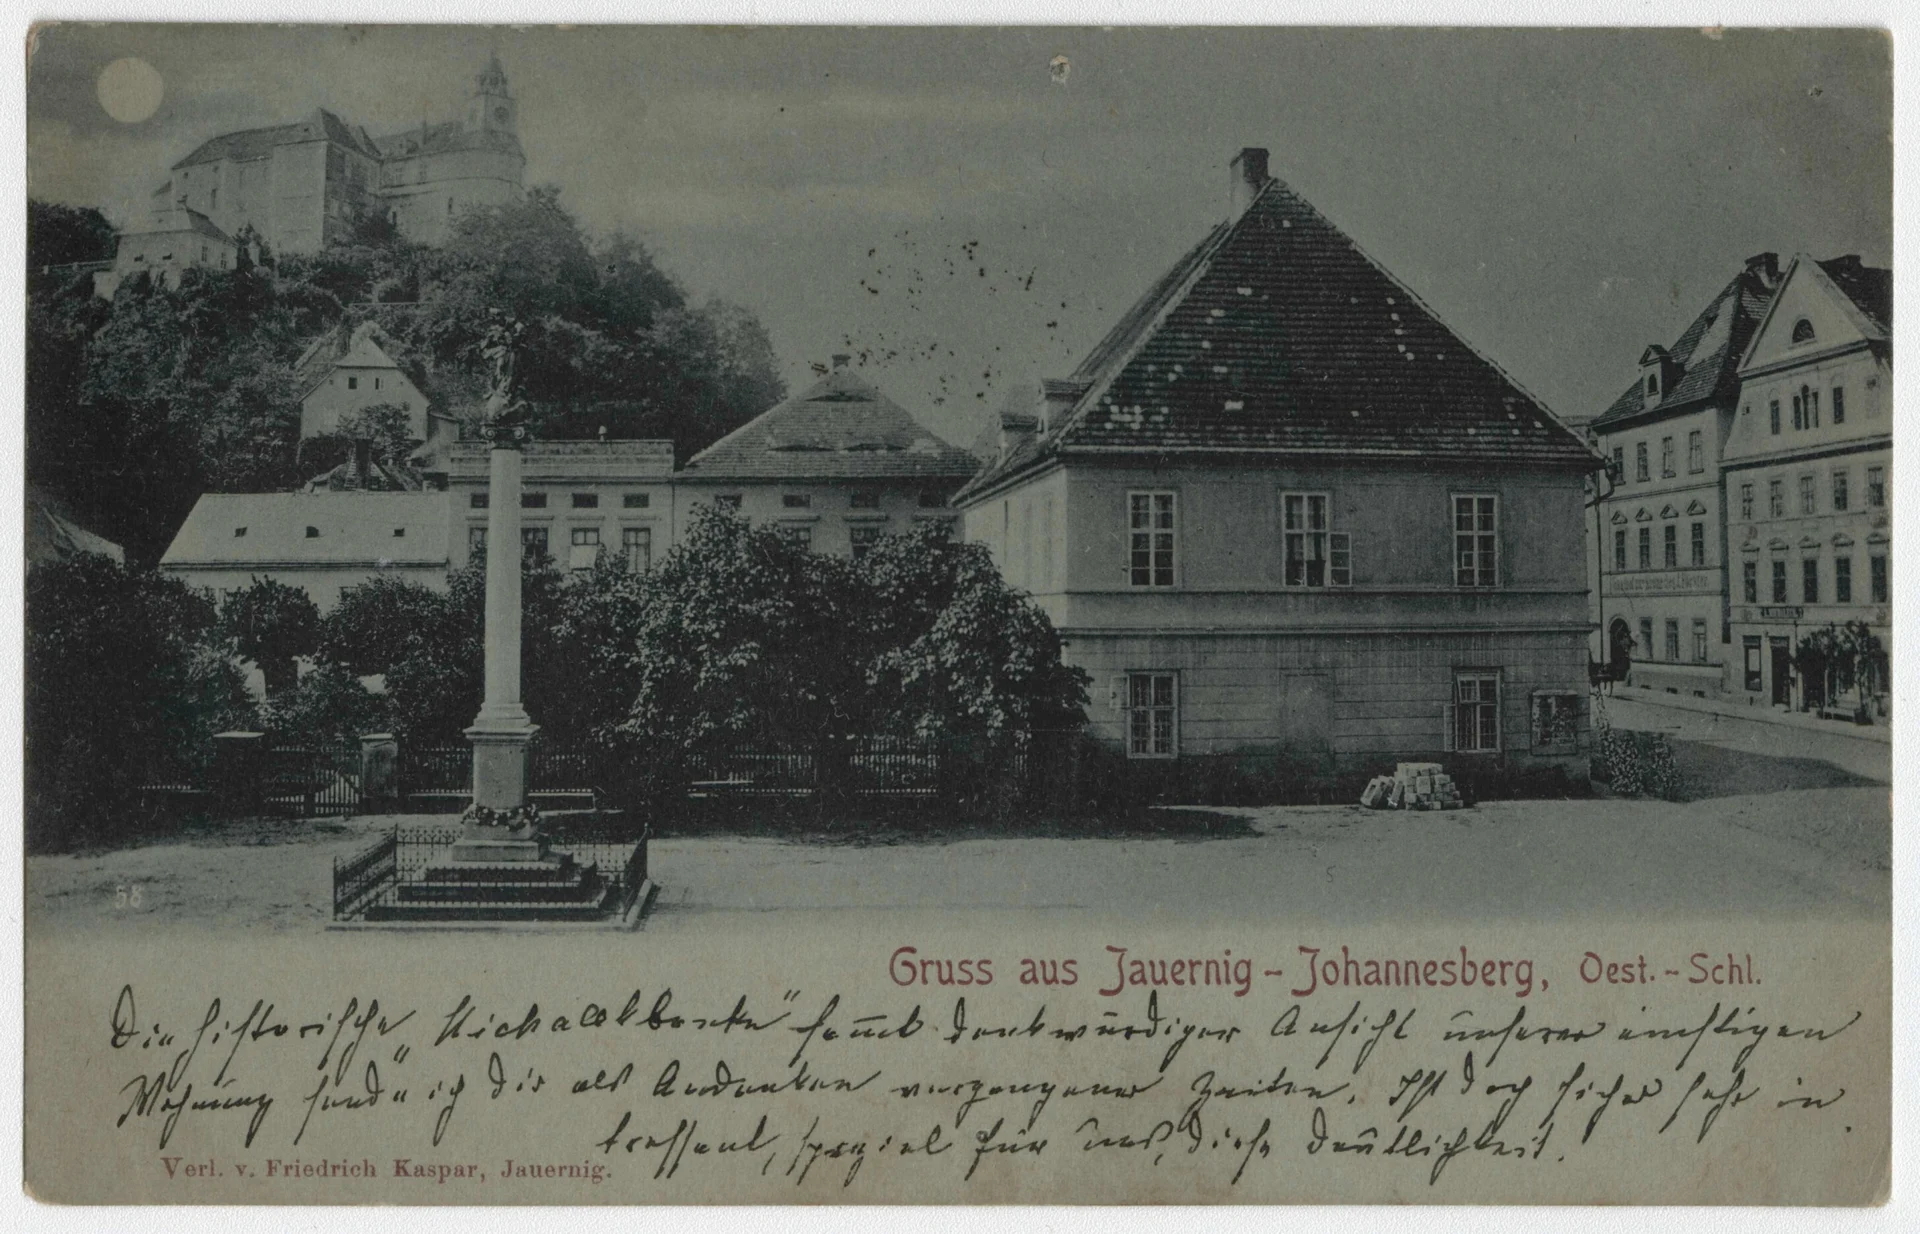 58
Gruss aus Jauernig - Johannesberg, Oest. - Schl.
Die historische „ " sammt denkwürdiger Ansicht unserer einstigen
Wohnung sende ich Dir als Andenken vergangener Zeiten. Ist doch sicher sehr in
tressant, speziel für uns, diese Deutlichkeit.
Verl. v. Friedrich Kaspar, Jauernig.